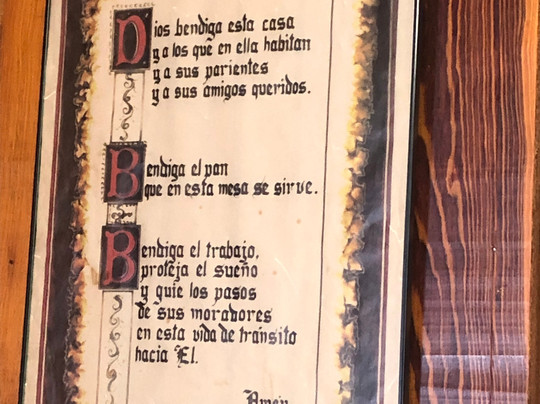 Dios bendiga esta casa
y a los que en ella habitan
y a sus parientes
y a sus amigos queridos.
Bendiga el pan
que en esta mesa se sirve.
Bendiga el trabajo,
proteja el sueño
y guie los pasos
de sus moradores
en esta vida de tránsito
hacia El.
Amén